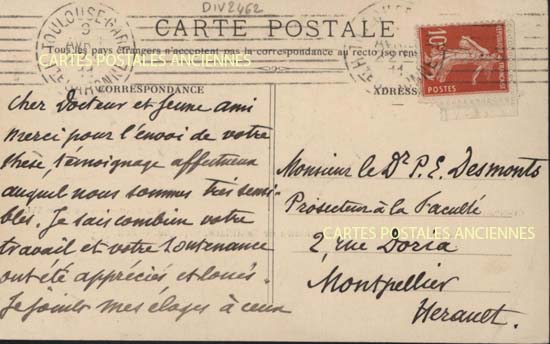 DIV2462
CARTE POSTALE
Tous les pays étrangers n'acceptent pas la correspondance au recto
CORRESPONDANCE
ADRESSE
TOULOUSE-GARE
10
POSTES
CARTES POSTALES ANCIENNES
Cher Docteur et jeune ami
merci pour l'envoi de votre
thèse, témoignage affectueux
auquel nous sommes très sensi-
bles. Je sais combien votre
travail et votre soutenance
ont été appréciés et loués.
Je joins mes éloges à ceux
Monsieur le Dr P. E. Desmonts
Prosecteur à la Faculté
CARTES POSTALES ANCIENNES
2, rue Doria
Montpellier
Herault.
CARTES POSTALES ANCIENNES